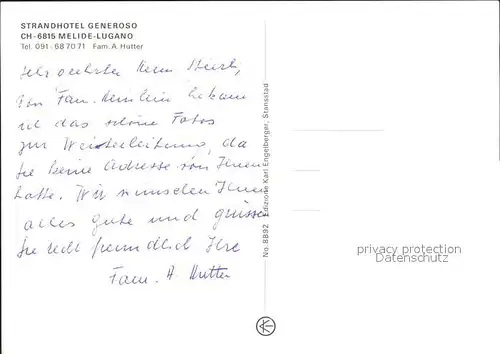 STRANDHOTEL GENEROSO
CH-6815 MELIDE-LUGANO
Tel. 091-687071 Fam. A. Hutter
Sehr geehrter Herr
von Fam. bekam
ich das schöne Fotos
zur Weiterleitung, da
Sie keine Adresse von Ihnen
hatte. Wir wünschen Ihnen
alles gute und grüssen
Sie recht freundlich Ihre
Fam. A Hutter
No. 8892 Edizione Karl Engelberger, Stansstad
privacy protection
Datenschutz